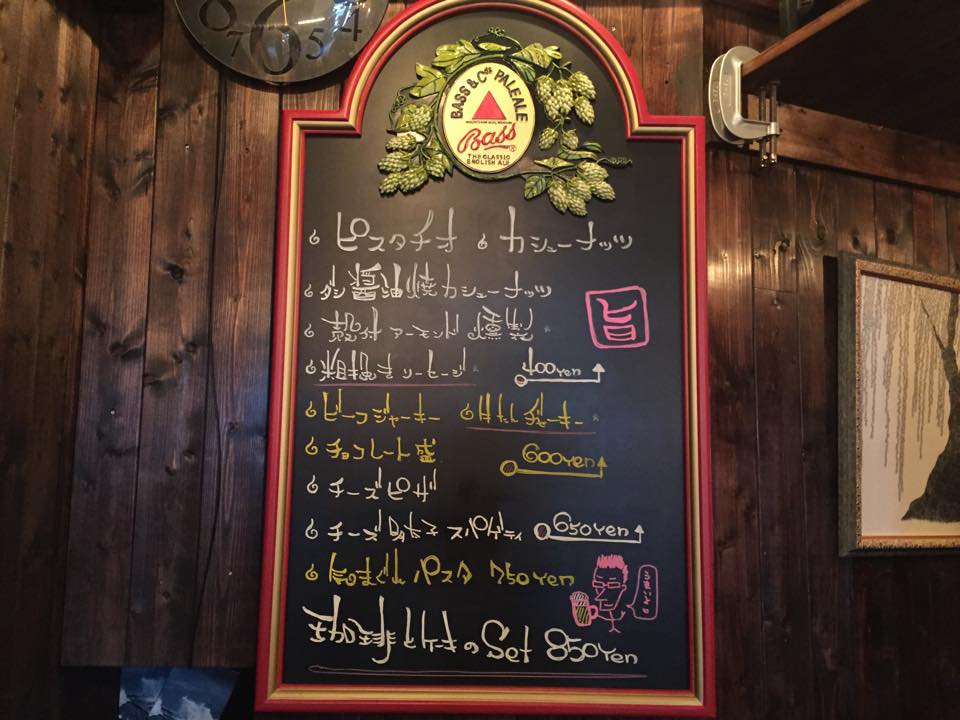 7 6 5 4
BASS & Co's PALE ALE
Bass
THE CLASSIC
ENGLISH ALE
ピスタチオ カシューナッツ
ダシ醤油焼カシューナッツ
殻付アーモンド燻製
旨
粗挽きソーセージ 400yen
ビーフジャーキー 牛たんジャーキー
チョコレート盛 600yen
チーズピザ
チーズ スパゲティ 650yen
気まぐれパスタ 750yen
ケーキのSet 850yen